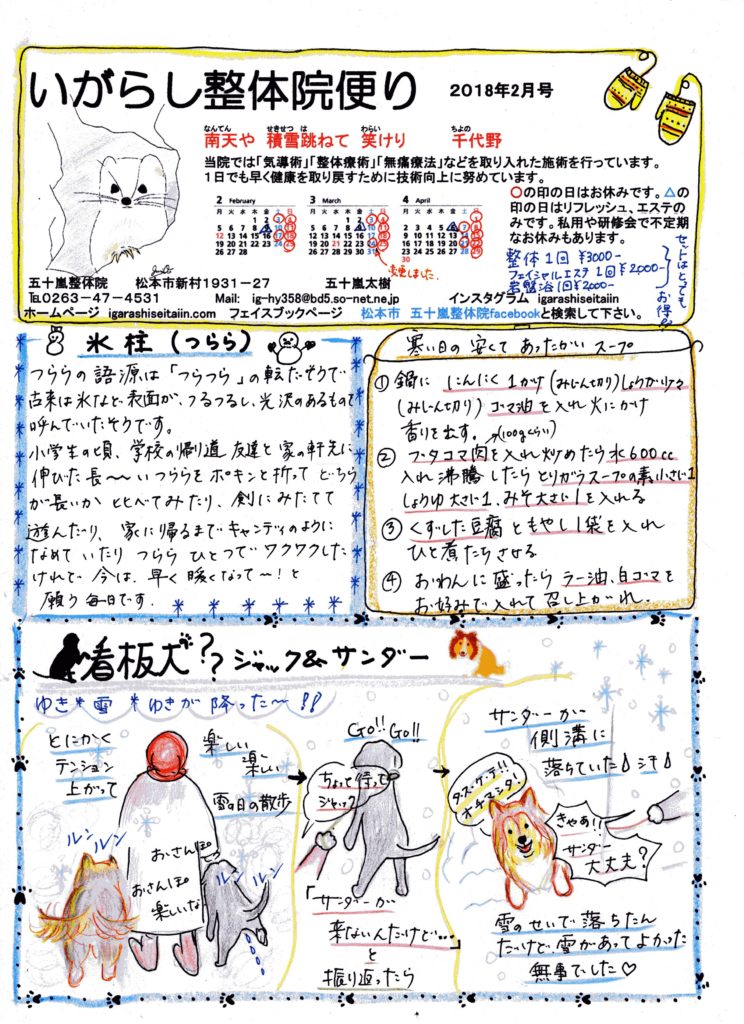 いがらし整体院便り 2018年2月号
なんてん せきせつ は わらい ちよの
南天や 積雪跳ねて 笑けり 千代野
当院では「気導術」「整体療術」「無痛療法」などを取り入れた施術を行っています。
1日でも早く健康を取り戻すために技術向上に努めています。
○の印の日はお休みです。△の
印の日はリフレッシュ、エステの
みです。私用や研修会で不定期
なお休みもあります。
2 February 3 March 4 April
月 火 水 木 金 土 日 月 火 水 木 金 土 日 月 火 水 木 金 土 日
1 2 3 4 1 2 3 4 1
5 6 7 8 9 10 11 5 6 7 8 9 10 11 2 3 4 5 6 7 8
12 13 14 15 16 17 18 12 13 14 15 16 17 18 9 10 11 12 13 14 15
19 20 21 22 23 24 25 19 20 21 22 23 24 25 16 17 18 19 20 21 22
26 27 28 26 27 28 29 30 31 23 24 25 26 27 28 29
30
変更しました。
整体1回 ¥3000-
フェイシャルエステ1回¥2000-
岩盤浴1回¥2000-
セットはとっても
お得!!
五十嵐整体院 松本市新村1931-27 五十嵐太樹
℡0263-47-4531 Mail: ig-hy358@bd5.so-net.ne.jp インスタグラム igarashiseitaiin
ホームページ igarashiseitaiin.com フェイスブックページ 松本市 五十嵐整体院facebookと検索して下さい。
氷柱(つらら)
つららの語源は「つらつら」の転だそうで
古来は氷など表面が、つるつるし、光沢のあるものを
呼んでいたそうです。
小学生の頃、学校の帰り道 友達と家の軒先に
伸びた長〜いつららをポキンと折って どちら
が長いか比べてみたり、剣にみたてて
遊んだり、家に帰るまでキャンディのように
なめていたり つらら ひとつで ワクワクした
けれど 今は、早く暖くなって〜!と
願う毎日です.
寒い日の安くてあったかいスープ
① 鍋に にんにく1かけ(みじん切り)しょうが
(みじん切り) ゴマ油を入れ火にかけ
香りを出す。
(100gくらい)
② ブタコマ肉を入れ炒めたら 水600cc
入れ沸騰したら とりがらスープの素小さじ1
しょうゆ大さじ1、みそ大さじ1を入れる
③ くずした豆腐ともやし1袋を入れ
ひと煮たちさせる
④ おわんに盛ったら ラー油、白ゴマを
お好みで入れて召し上がれ.
看板犬?? ジャック&サンダー
ゆき*雪*ゆきが降った〜!!
とにかく
テンション
上がって
楽しい
楽しい
雪の日の散歩
ルン
ルン
おさんぽ
おさんぽ
楽しいな
ルン
ルン
Go!! Go!!
ちょっと待って
ジャック
「サンダーが
来ないんだけど…」
と
振り返ったら
サンダーが
側溝に
落ちていた
タスケテ!!
オチマシタ!
きゃあ!!
サンダー
大丈夫?
雪のせいで落ちたん
だけど、雪があってよかった
無事でした♡